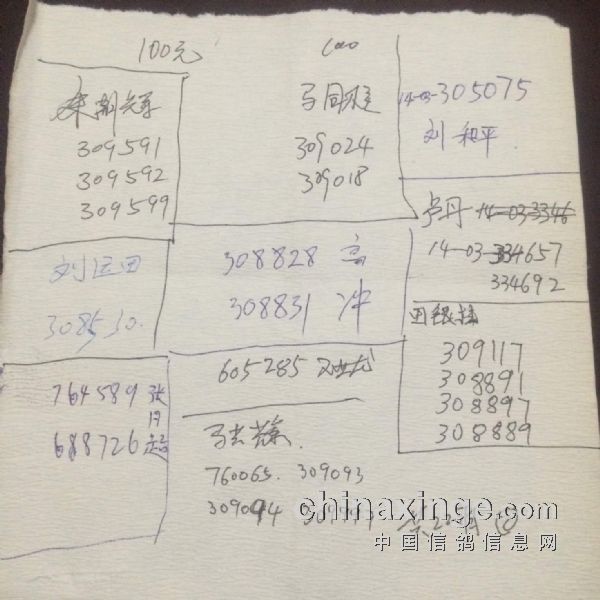 100元
100
309591
309592
309599
马同
309024
309018
14-03-305075
刘和平
卢丹 14-03-3346
14-03-334657
334692
刘运田
308530.
308828 高
308831 冲
田银柱
309117
308891
308897
308889
605285
764589 张
月
688726 超
马
760065. 309093
309094
chinaxinge.com
中国信鸽信息网